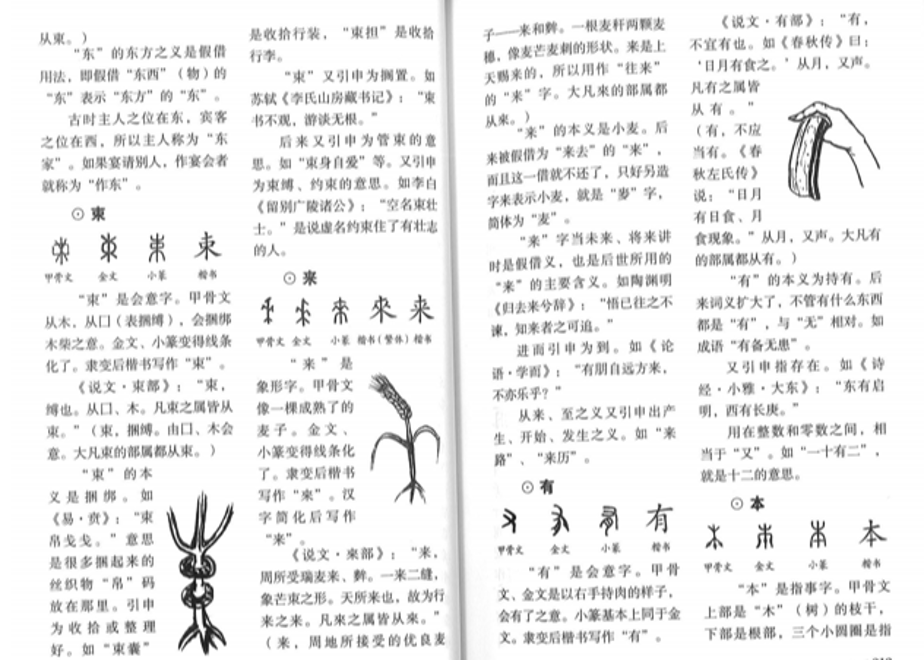 从東。）
“东”的东方之义是假借
用法，即假借“东西”（物）的
“东”表示“东方”的“东”。
古时主人之位在东，宾客
之位在西，所以主人称为“东
家”。如果宴请别人，作宴会者
就称为“作东”。
⊙束
束
甲骨文 金文 小篆 楷书
“束”是会意字。甲骨文
从木，从囗（表捆缚），会捆绑
木柴之意。金文、小篆变得线条
化了。隶变后楷书写作“束”。
《说文·束部》：“束，
缚也。从囗、木。凡束之属皆从
束。”（束，捆缚。由囗、木会
意。大凡束的部属都从束。）
“束”的本
义是捆绑。如
《易·贲》：“束
帛戋戋。”意思
是很多捆起来的
丝织物“帛”码
放在那里。引申
为收拾或整理
好。如“束囊”
是收拾行装，“束担”是收拾
行李。
“束”又引申为搁置。如
苏轼《李氏山房藏书记》：“束
书不观，游谈无根。”
后来又引申为管束的意
思。如“束身自爱”等。又引申
为束缚、约束的意思。如李白
《留别广陵诸公》：“空名束壮
士。”是说虚名约束住了有壮志
的人。
⊙来
來 来
甲骨文 金文 小篆 楷书(繁体) 楷书
“来”是
象形字。甲骨文
像一棵成熟了的
麦子。金文、
小篆变得线条化
了。隶变后楷书
写作“來”。汉
字简化后写作
“来”。
《说文·來部》：“来，
周所受瑞麦来、麰。一来二缝，
象芒束之形。天所来也，故为行
来之来。凡來之属皆从來。”
（来，周地所接受的优良麦
子——来和麰。一根麦秆两颗麦
穗，像麦芒麦刺的形状。来是上
天赐来的，所以用作“往来”
的“来”字。大凡來的部属都
从来。）
“来”的本义是小麦。后
来被假借为“来去”的“来”，
而且这一借就不还了，只好另造
字来表示小麦，就是“麥”字，
简体为“麦”。
“来”字当未来、将来讲
时是假借义，也是后世所用的
“来”的主要含义。如陶渊明
《归去来兮辞》：“悟已往之不
谏，知来者之可追。”
进而引申为到。如《论
语·学而》：“有朋自远方来，
不亦乐乎？”
从来、至之义又引申出产
生、开始、发生之义。如“来
路”、“来历”。
⊙有
有
甲骨文 金文 小篆 楷书
“有”是会意字。甲骨
文、金文是以右手持肉的样子，
会有了之意。小篆基本上同于金
文。隶变后楷书写作“有”。
《说文·有部》：“有，
不宜有也。如《春秋传》曰：
‘日月有食之。’从月，又声。
凡有之属皆
从有。”
（有，不应
当有。《春
秋左氏传》
说：“日月
有日食、月
食现象。”从月，又声。大凡有
的部属都从有。）
“有”的本义为持有。后
来词义扩大了，不管有什么东西
都是“有”，与“无”相对。如
成语“有备无患”。
又引申指存在。如《诗
经·小雅·大东》：“东有启
明，西有长庚。”
用在整数和零数之间，相
当于“又”。如“一十有二”，
就是十二的意思。
⊙本
本
甲骨文 金文 小篆 楷书
“本”是指事字。甲骨文
上部是“木”（树）的枝干，
下部是根部，三个小圆圈是指